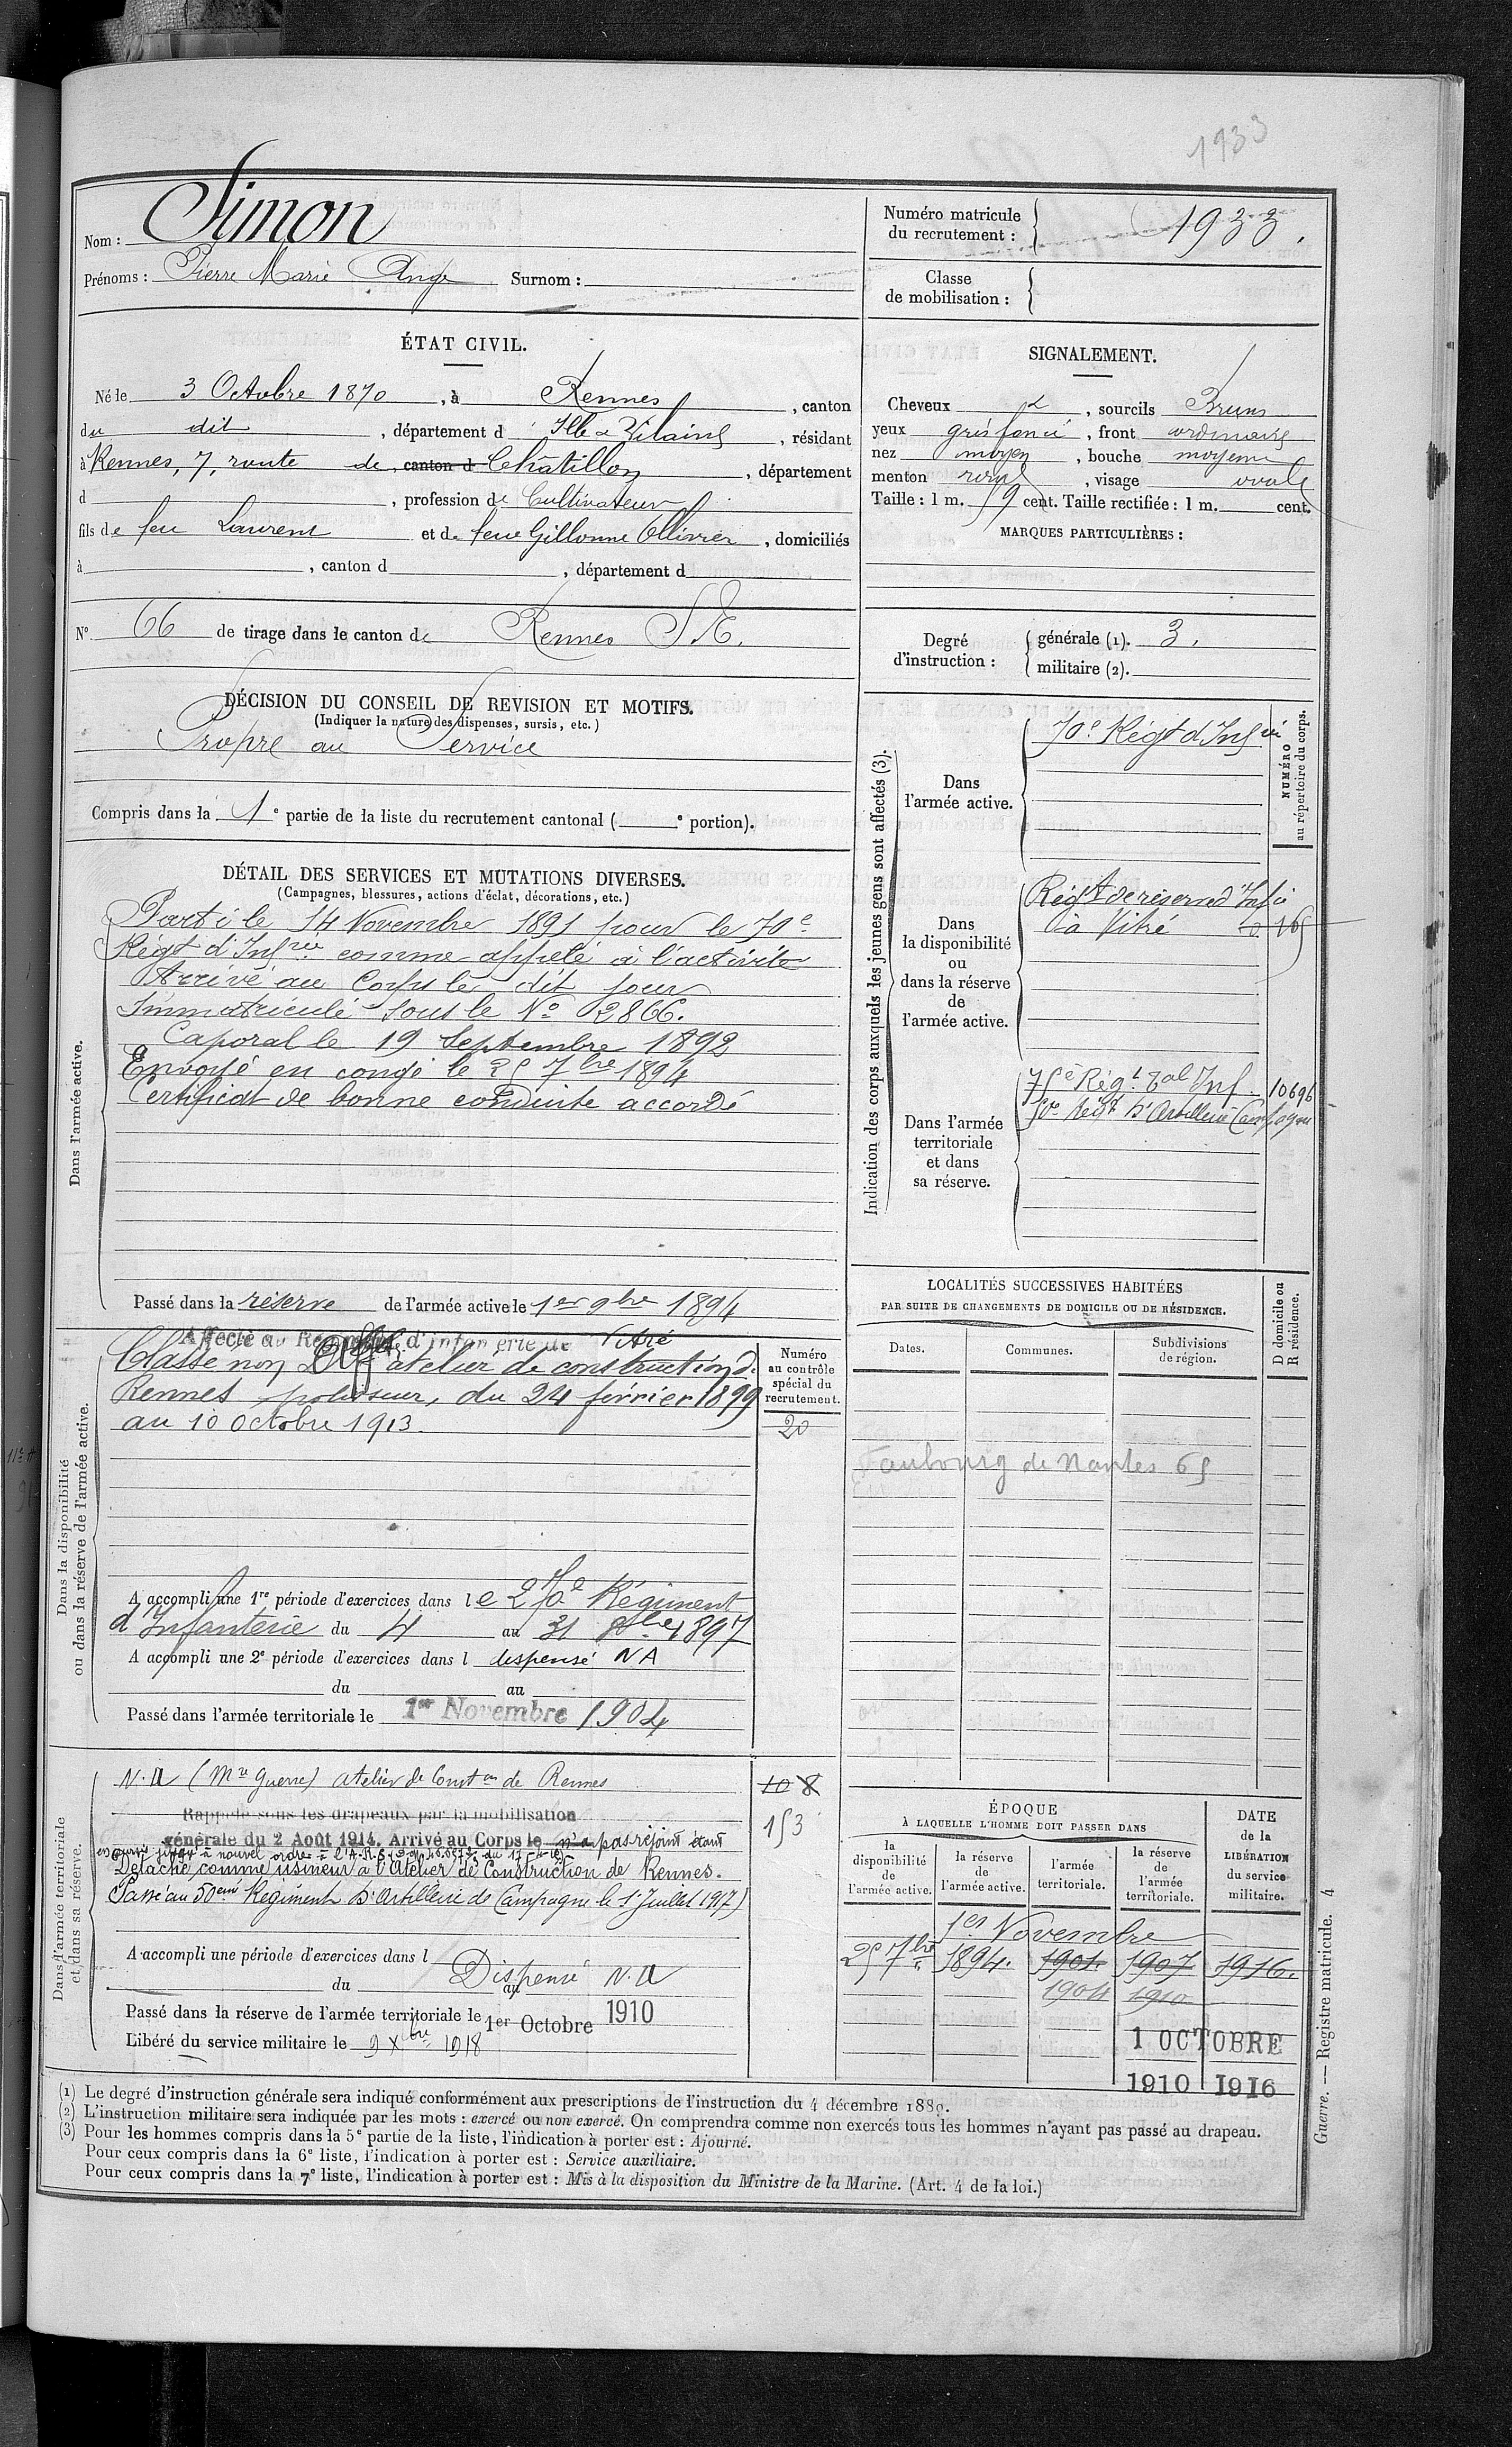 1933
Nom : Simon
Prénoms : Pierre Marie Ange Surnom :
Numéro matricule du recrutement : 1933.
Classe de mobilisation :
ÉTAT CIVIL.
Né le 3 Octobre 1870, à Rennes, canton
du dit, département d Ille & Vilaine, résidant
à Rennes, 7, route de canton d Châtillon, département
d , profession de Cultivateur
fils de feu Laurent et de feue Gillonne Ollivier, domiciliés
à , canton d , département d
N° 66 de tirage dans le canton de Rennes S.E.
SIGNALEMENT.
Cheveux &, sourcils Bruns
yeux gris foncé, front ordinaire
nez moyen, bouche moyenne
menton rond, visage ovale
Taille : 1 m. 59 cent. Taille rectifiée : 1 m. cent.
MARQUES PARTICULIÈRES :
Degré d'instruction : générale (1). 3.
militaire (2).
DÉCISION DU CONSEIL DE REVISION ET MOTIFS.
(Indiquer la nature des dispenses, sursis, etc.)
Propre au Service
Compris dans la 1e partie de la liste du recrutement cantonal ( e portion).
DÉTAIL DES SERVICES ET MUTATIONS DIVERSES.
(Campagnes, blessures, actions d'éclat, décorations, etc.)
Dans l'armée active.
Parti le 14 Novembre 1891 pour le 70e
Régt d'Infrie comme appelé à l'activité
Arrivé au Corps le dit jour
Immatriculé sous le N° 2866.
Caporal le 19 Septembre 1892
Envoyé en congé le 25 7bre 1894
Certificat de bonne conduite accordé
Passé dans la réserve de l'armée active le 1er 9bre 1894
Indication des corps auxquels les jeunes gens sont affectés (3).
NUMÉRO au répertoire du corps.
Dans l'armée active.
70e Régt d'Infie
Dans la disponibilité ou dans la réserve de l'armée active.
Régt de réserve d'Infie
à Vitré
Dans l'armée territoriale et dans sa réserve.
75e Régt Tal Inf. 10696
50e Régt d'Artillerie Campagne
Dans la disponibilité ou dans la réserve de l'armée active.
Affecté au Régiment d'infanterie de Vitré
Classé non Aff. atelier de construction de
Rennes polisseur, du 24 février 1899
au 10 octobre 1913.
Numéro au contrôle spécial du recrutement.
20
A accompli une 1re période d'exercices dans le 270e Régiment
d'Infanterie du 4 au 31 8bre 1897
A accompli une 2e période d'exercices dans l dispensé NA
du au
Passé dans l'armée territoriale le 1er Novembre 1904
LOCALITÉS SUCCESSIVES HABITÉES
PAR SUITE DE CHANGEMENTS DE DOMICILE OU DE RÉSIDENCE.
Dates. Communes. Subdivisions de région. D domicile ou R résidence.
Faubourg de Nantes 65
Dans l'armée territoriale et dans sa réserve.
N.A (Mre Guerre) atelier de Conston de Rennes
108
153
Rappelé sous les drapeaux par la mobilisation
générale du 2 Août 1914. Arrivé au Corps le n'a pas rejoint étant
en sursis jusqu'à nouvel ordre
Détaché comme usineur à l'Atelier de Construction de Rennes.
Passé au 50eme Régiment d'Artillerie de Campagne le 1er Juillet 1917)
A accompli une période d'exercices dans l Dispensé N.A
du au
Passé dans la réserve de l'armée territoriale le 1er Octobre 1910
Libéré du service militaire le 9 Xbre 1918
ÉPOQUE À LAQUELLE L'HOMME DOIT PASSER DANS
la disponibilité de l'armée active.
la réserve de l'armée active.
l'armée territoriale.
la réserve de l'armée territoriale.
DATE de la LIBÉRATION du service militaire.
1er Novembre
25 7bre 1894. 1901. 1907 1916.
1904 1910
1 OCTOBRE
1910 1916
(1) Le degré d'instruction générale sera indiqué conformément aux prescriptions de l'instruction du 4 décembre 1889.
(2) L'instruction militaire sera indiquée par les mots : exercé ou non exercé. On comprendra comme non exercés tous les hommes n'ayant pas passé au drapeau.
(3) Pour les hommes compris dans la 5e partie de la liste, l'indication à porter est : Ajourné.
Pour ceux compris dans la 6e liste, l'indication à porter est : Service auxiliaire.
Pour ceux compris dans la 7e liste, l'indication à porter est : Mis à la disposition du Ministre de la Marine. (Art. 4 de la loi.)
Guerre. — Registre matricule. 4